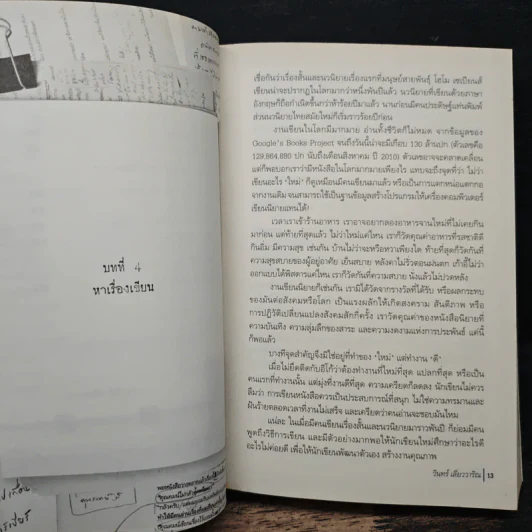 บทที่ 4
หาเรื่องเขียน
เชื่อกันว่าเรื่องสั้นและนวนิยายเรื่องแรกที่มนุษย์สายพันธุ์ โฮโม เซเปียนส์
เขียนน่าจะปรากฏในโลกมากกว่าหนึ่งพันปีแล้ว นวนิยายที่เขียนด้วยภาษา
อังกฤษก็ถือกำเนิดขึ้นกว่าห้าร้อยปีมาแล้ว นานก่อนมีคนประดิษฐ์แท่นพิมพ์
ส่วนนวนิยายไทยสมัยใหม่ก็เริ่มราวร้อยปีก่อน
งานเขียนในโลกมีมากมาย อ่านทั้งชีวิตก็ไม่หมด จากข้อมูลของ
Google's Books Project จนถึงวันนี้น่าจะมีเกือบ 130 ล้านปก (ตัวเลขคือ
129,864,880 ปก นับถึงเดือนสิงหาคม ปี 2010) ตัวเลขอาจจะคลาดเคลื่อน
แต่ก็พอบอกเราว่ามีหนังสือในโลกมากมายเพียงไร แทบจะถึงจุดที่ว่า ไม่ว่า
เขียนอะไร "ใหม่" ก็ดูเหมือนมีคนเขียนมาแล้ว หรือเป็นการแตกหน่อแตกกอ
จากงานเดิม จนสามารถใช้เป็นฐานข้อมูลสร้างโปรแกรมให้เครื่องคอมพิวเตอร์
เขียนนิยายแทนได้!
เวลาเราเข้าร้านอาหาร เราอาจอยากลองอาหารจานใหม่ที่ไม่เคยกิน
มาก่อน แต่ท้ายที่สุดแล้ว ไม่ว่าใหม่แค่ไหน เราก็วัดคุณค่าอาหารที่รสชาติดี
กินอิ่ม มีความสุข เช่นกัน บ้านไม่ว่าจะหรือหวาเพียงใด ท้ายที่สุดก็วัดกันที่
ความสุขสบายของผู้อยู่อาศัย เย็นสบาย หลังคาไม่รั่วตอนฝนตก เก้าอี้ไม่ว่า
ออกแบบได้พิสดารแค่ไหน เราก็วัดกันที่ความสบาย นั่งแล้วไม่ปวดหลัง
งานเขียนนิยายก็เช่นกัน เรามิได้วัดจากรางวัลที่ได้รับ หรือผลกระทบ
ของมันต่อสังคมหรือโลก เป็นแรงผลักให้เกิดสงคราม สันติภาพ หรือ
การปฏิวัติเปลี่ยนแปลงสังคมสักกี่ครั้ง เราวัดคุณค่าของหนังสือนิยายที่
ความบันเทิง ความลุ่มลึกของสาระ และความงดงามแห่งการประพันธ์ แค่นี้
ก็พอแล้ว
บางทีจุดสำคัญจึงมิใช่อยู่ที่ทำของ "ใหม่" แต่ทำงาน "ดี"
เมื่อไม่ยึดติดกับอีโก้ว่าต้องทำงานที่ใหม่ที่สุด แปลกที่สุด หรือเป็น
คนแรกที่ทำงานนั้น แต่มุ่งที่งานดีที่สุด ความเครียดก็ลดลง นักเขียนไม่ควร
ลืมว่า การเขียนหนังสือควรเป็นประสบการณ์ที่สนุก ไม่ใช่ความทรมานและ
ฝันร้ายตลอดเวลาที่งานไม่เสร็จ และเครียดว่าคนอ่านจะชอบมันไหม
แน่ละ ในเมื่อมีคนเขียนเรื่องสั้นและนวนิยายมาราวพันปี ก็ย่อมมีคน
พูดถึงวิธีการเขียน และมีตัวอย่างมากพอให้นักเขียนใหม่ศึกษาว่าอะไรดี
อะไรไม่ค่อยดี เพื่อให้นักเขียนพัฒนาตัวเอง สร้างงานคุณภาพ
วินทร์ เลียววาริณ | 13